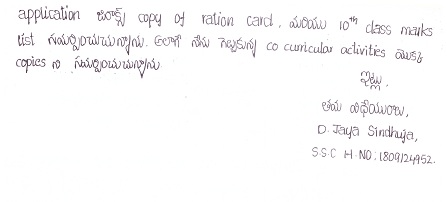 application జిరాక్స్ copy of ration card, మరియు 10th class marks
list సమర్పించుచున్నాను. అలాగే నేను గెలుచుకున్న co curricular activities యొక్క
copies ని సమర్పించుచున్నాను
ఇట్లు,
తమ విధేయురాలు,
D. Jaya Sindhuja,
S.S.C H.NO: 1809124952.